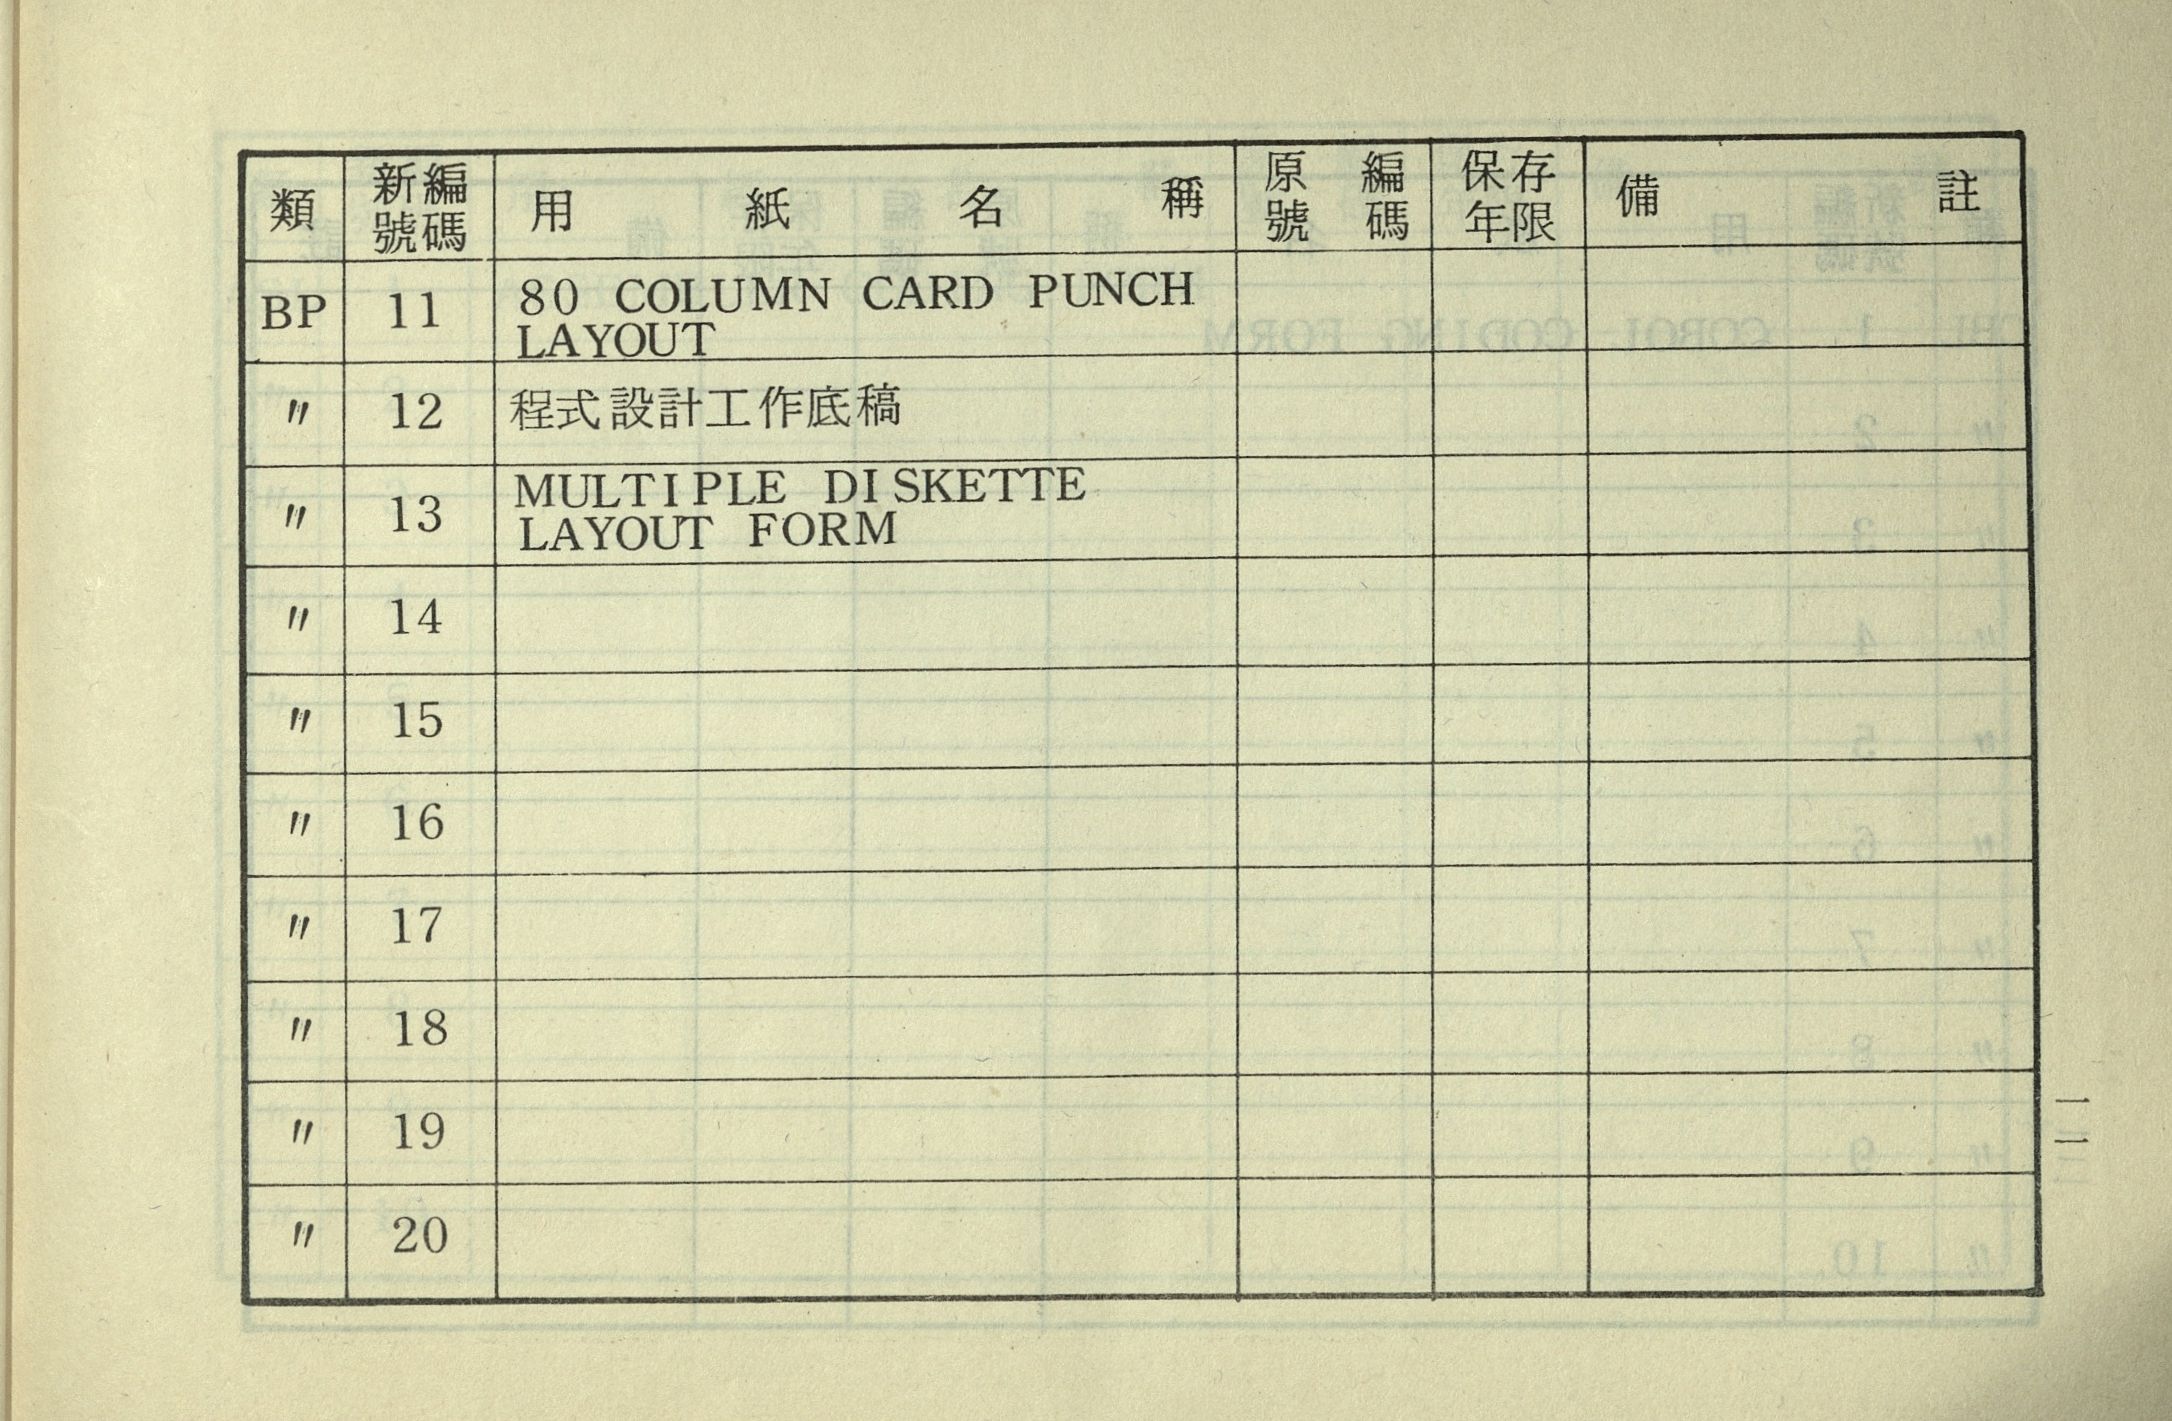 類 新編號碼 用紙名稱 原編號碼 保存年限 備註
BP 11 80 COLUMN CARD PUNCH
LAYOUT
〃 12 程式設計工作底稿
〃 13 MULTIPLE DISKETTE
LAYOUT FORM
〃 14
〃 15
〃 16
〃 17
〃 18
〃 19
〃 20